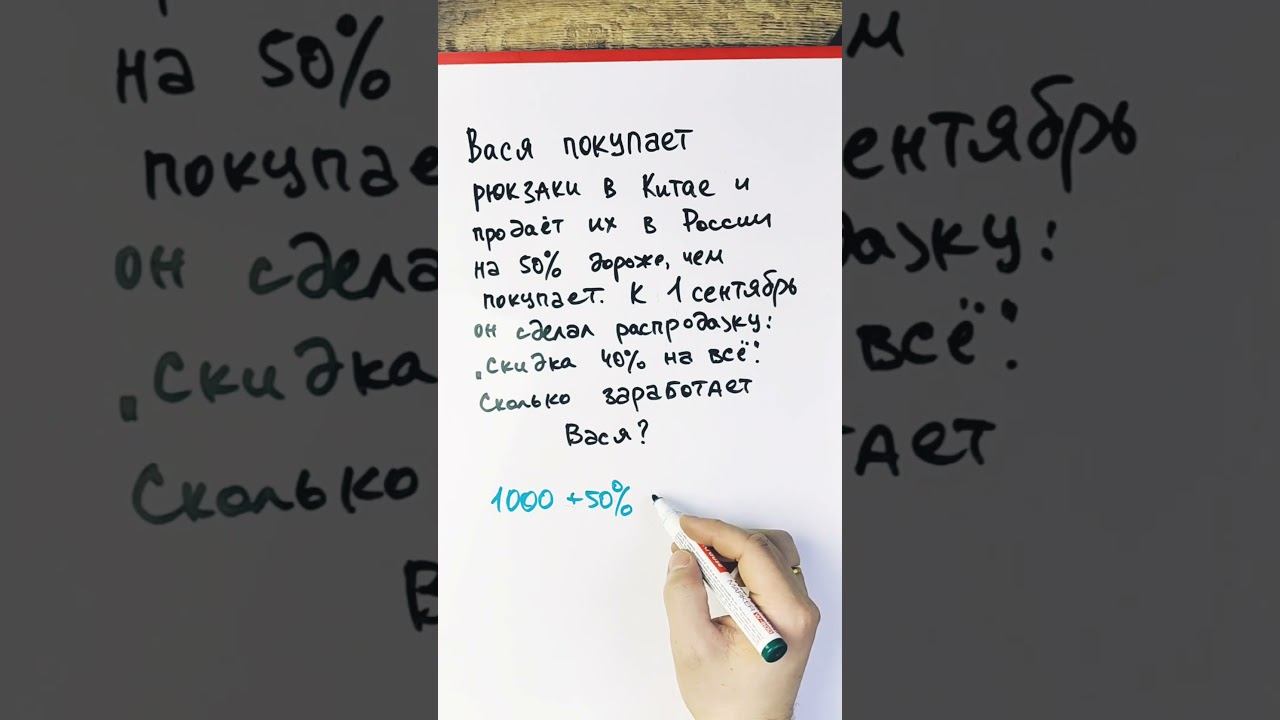 Вася покупает
рюкзаки в Китае и
продаёт их в России
на 50% дороже, чем
покупает. К 1 сентябрь
он сделал распродажу:
"Скидка 40% на всё".
Сколько заработает
Вася?
1000 + 50%
MARKER